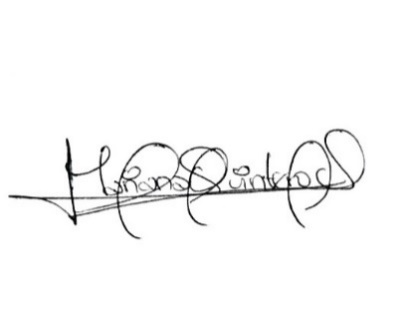 Mariana Quintero